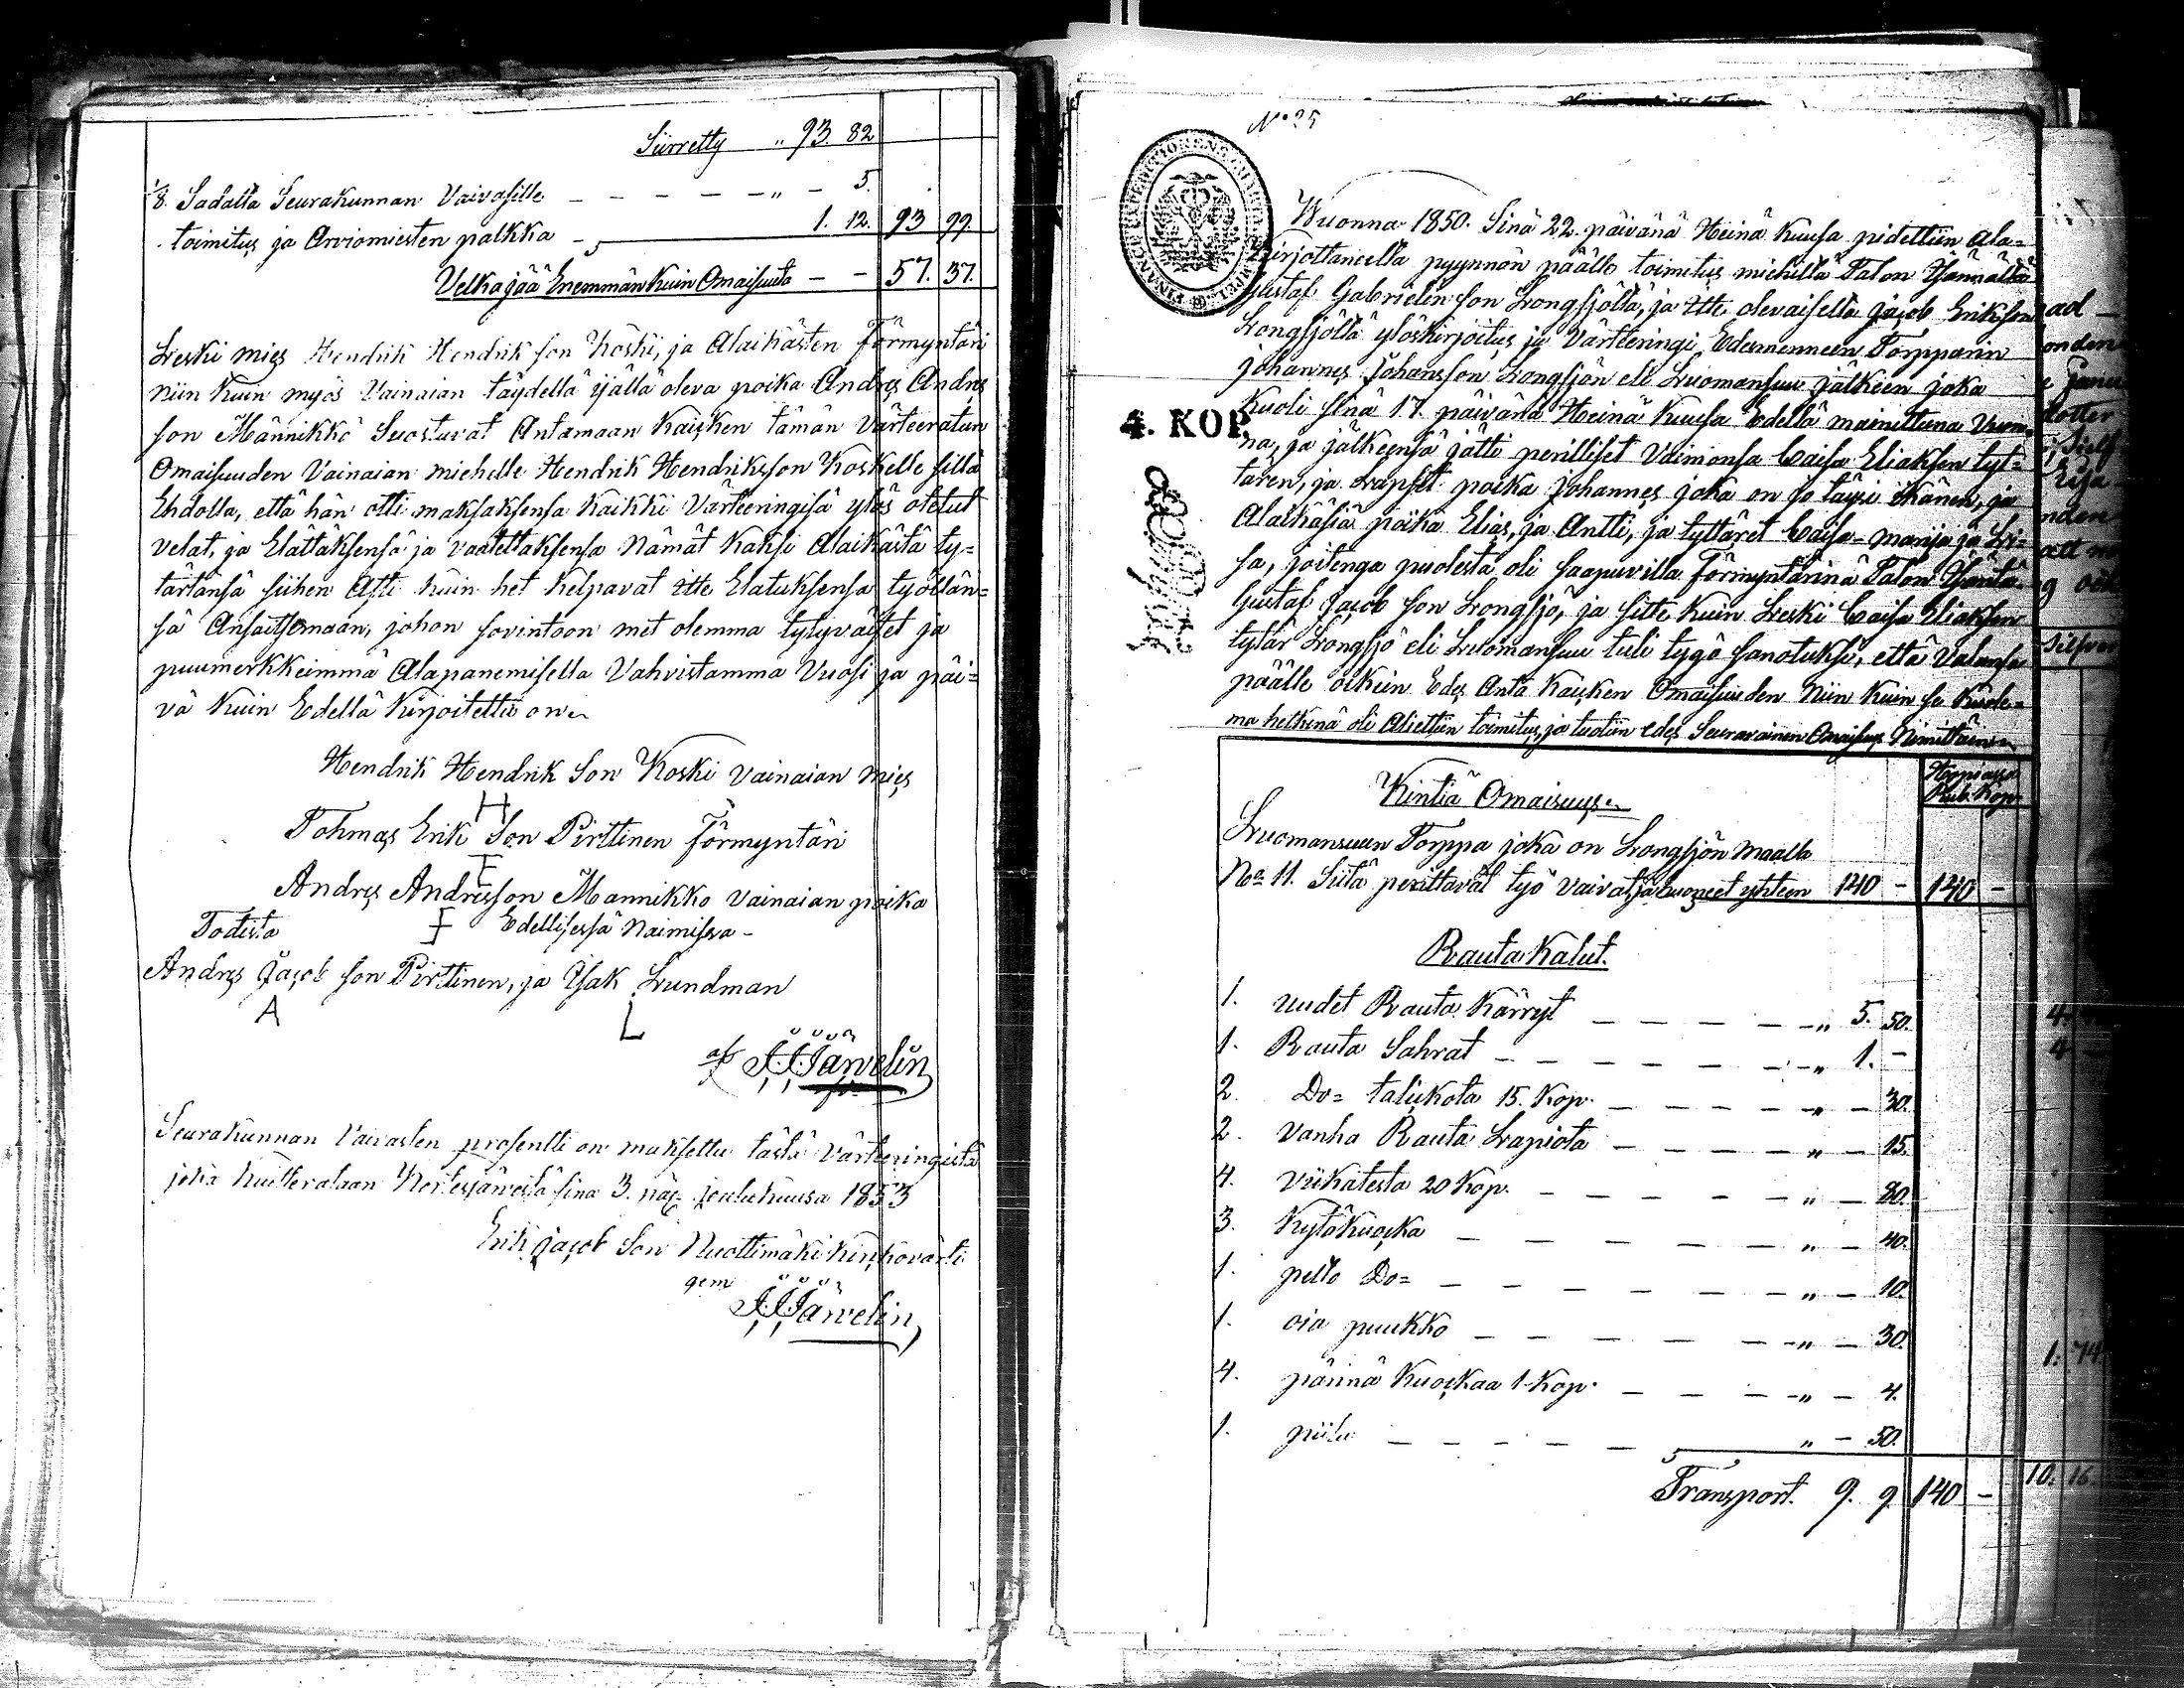 Siirretty " 93. 82
1/8. Sadalta Seurakunnan Vaivasille — — — — " — 5.
toimitus ja Arviomiesten palkka — 1. 12. 93 99.
Velka jää Enemmän kuin Omaisuuta — — 57. 37.
Leski mies Hendrik Hendrik son Koski, ja Alaikästen Förmyntäri
niin kuin myös Vainaian täydellä ijällä oleva poika Andres Andres
son Männikkö Suostuvat Antamaan Kaicken tämän Värteeratun
Omaisuuden Vainaian miehelle Hendrik Hendriksson Koskelle sillä
Ehdolla, että hän otti maksaksensa kaikki Värteeringisä ylös otetut
velat, ja Elättäksensä ja vaatettaksensa Nämät kaksi Alaikästä ty=
tärtänsä siihen Asti kuin het kelpavat itte Elatuksensa työllän=
sä Ansaittemaan, johon sovintoon met olemma tytyväiset ja
puumerkkeimmä Alapanemisella Vahvistamma Vuosi ja päi=
vä kuin Edellä kirjoitettu on
Hendrik Hendrik Son Koski vainaian mies
H
Tohmas Erik Son Pirttinen förmyntäri
Andres Andresson Mannikko vainaian poika
Todista Edellisessä Naimisessa —
Andres Jacob son Pirttinen, ja Isak Lundman
A L
af J.J. Järvelin
Seurakunnan Vaivasten prosentti on maksettu tästä Värteeringistä
joka kuitterataan Kortesjärvestä sinä 3. päi= joulukuusa 1853
Erik Jacob Son Nuottimäki kirkovärti
gem J.J. Järvelin
No 35
Wuonna 1850. Sinä 22. päivänä Heinä kuusa pidettiin ala=
kirjottaneelta pyynnön päälle toimitus miehiltä Talon Isännältä
Gustaf Gabrielin son Longsjöltä, ja itte olevaiselta Jacob Erikson
Longsjöltä ylöskirjoitus ja Värteeringi Edesmenneen Torpparin
Johannes Johansson Longsjön eli Luomansuu jälkeen joka
4. KOP.
kuoli sinä 17. päivänä Heinä kuusa Edellä mainittuna Vuon=
na, ja jälkeensä jätti perilliset Vaimonsa Caisa Eliaksen tyt=
tären, ja Lapset poika Johannes joka on jo täysi ikänen, ja
Alaikäsiä poika Elias, ja Antti, ja tyttäret Caisa=Marija ja Li=
sa, joitenga puolesta oli saapuvilla Förmyntärinä Talon Isäntä
Gustaf Jacob son Longsjö, ja sitte kuin Leski Caisa Eliaksen
tytär Longsjö eli Luomansuu tuli tygö sanotuksi, että Valansa
päälle oikein Edes Anta kaicken Omaisuuden Niin kuin se kuole=
ma hetkinä oli Aliettiin toimitus, ja tuotiin edes Seuraavainen Omaisuus Nimittäin
Hopiassa
Rub. Kop.
Kintiä Omaisuus
Luomansuun Torppa joka on Longsjön Maalla
No 11. Siitä perittävät työ vaivat ja huoneet yhteen 140 — 140 —
Rauta Kalut.
1. uudet Rauta Kärryt — — — — " 5. 50.
1. Rauta Sahrat — — — — " 1. —
2. Do= talickota 15. Kop. — — — " — 30.
2. vanha Rauta Lapiota — — — " — 15.
4. viikatesta 20 Kop. — — — — " — 80.
3. Kytökuocka — — — — " — 40.
1. pelto Do= — — — — " — 10.
1. oia puukko — — — — " — 30.
4. pännä Kuockaa 1 Kop. — — — " — 4.
1. piilu — — — — " — 50.
Transport. 9. 9 140 —